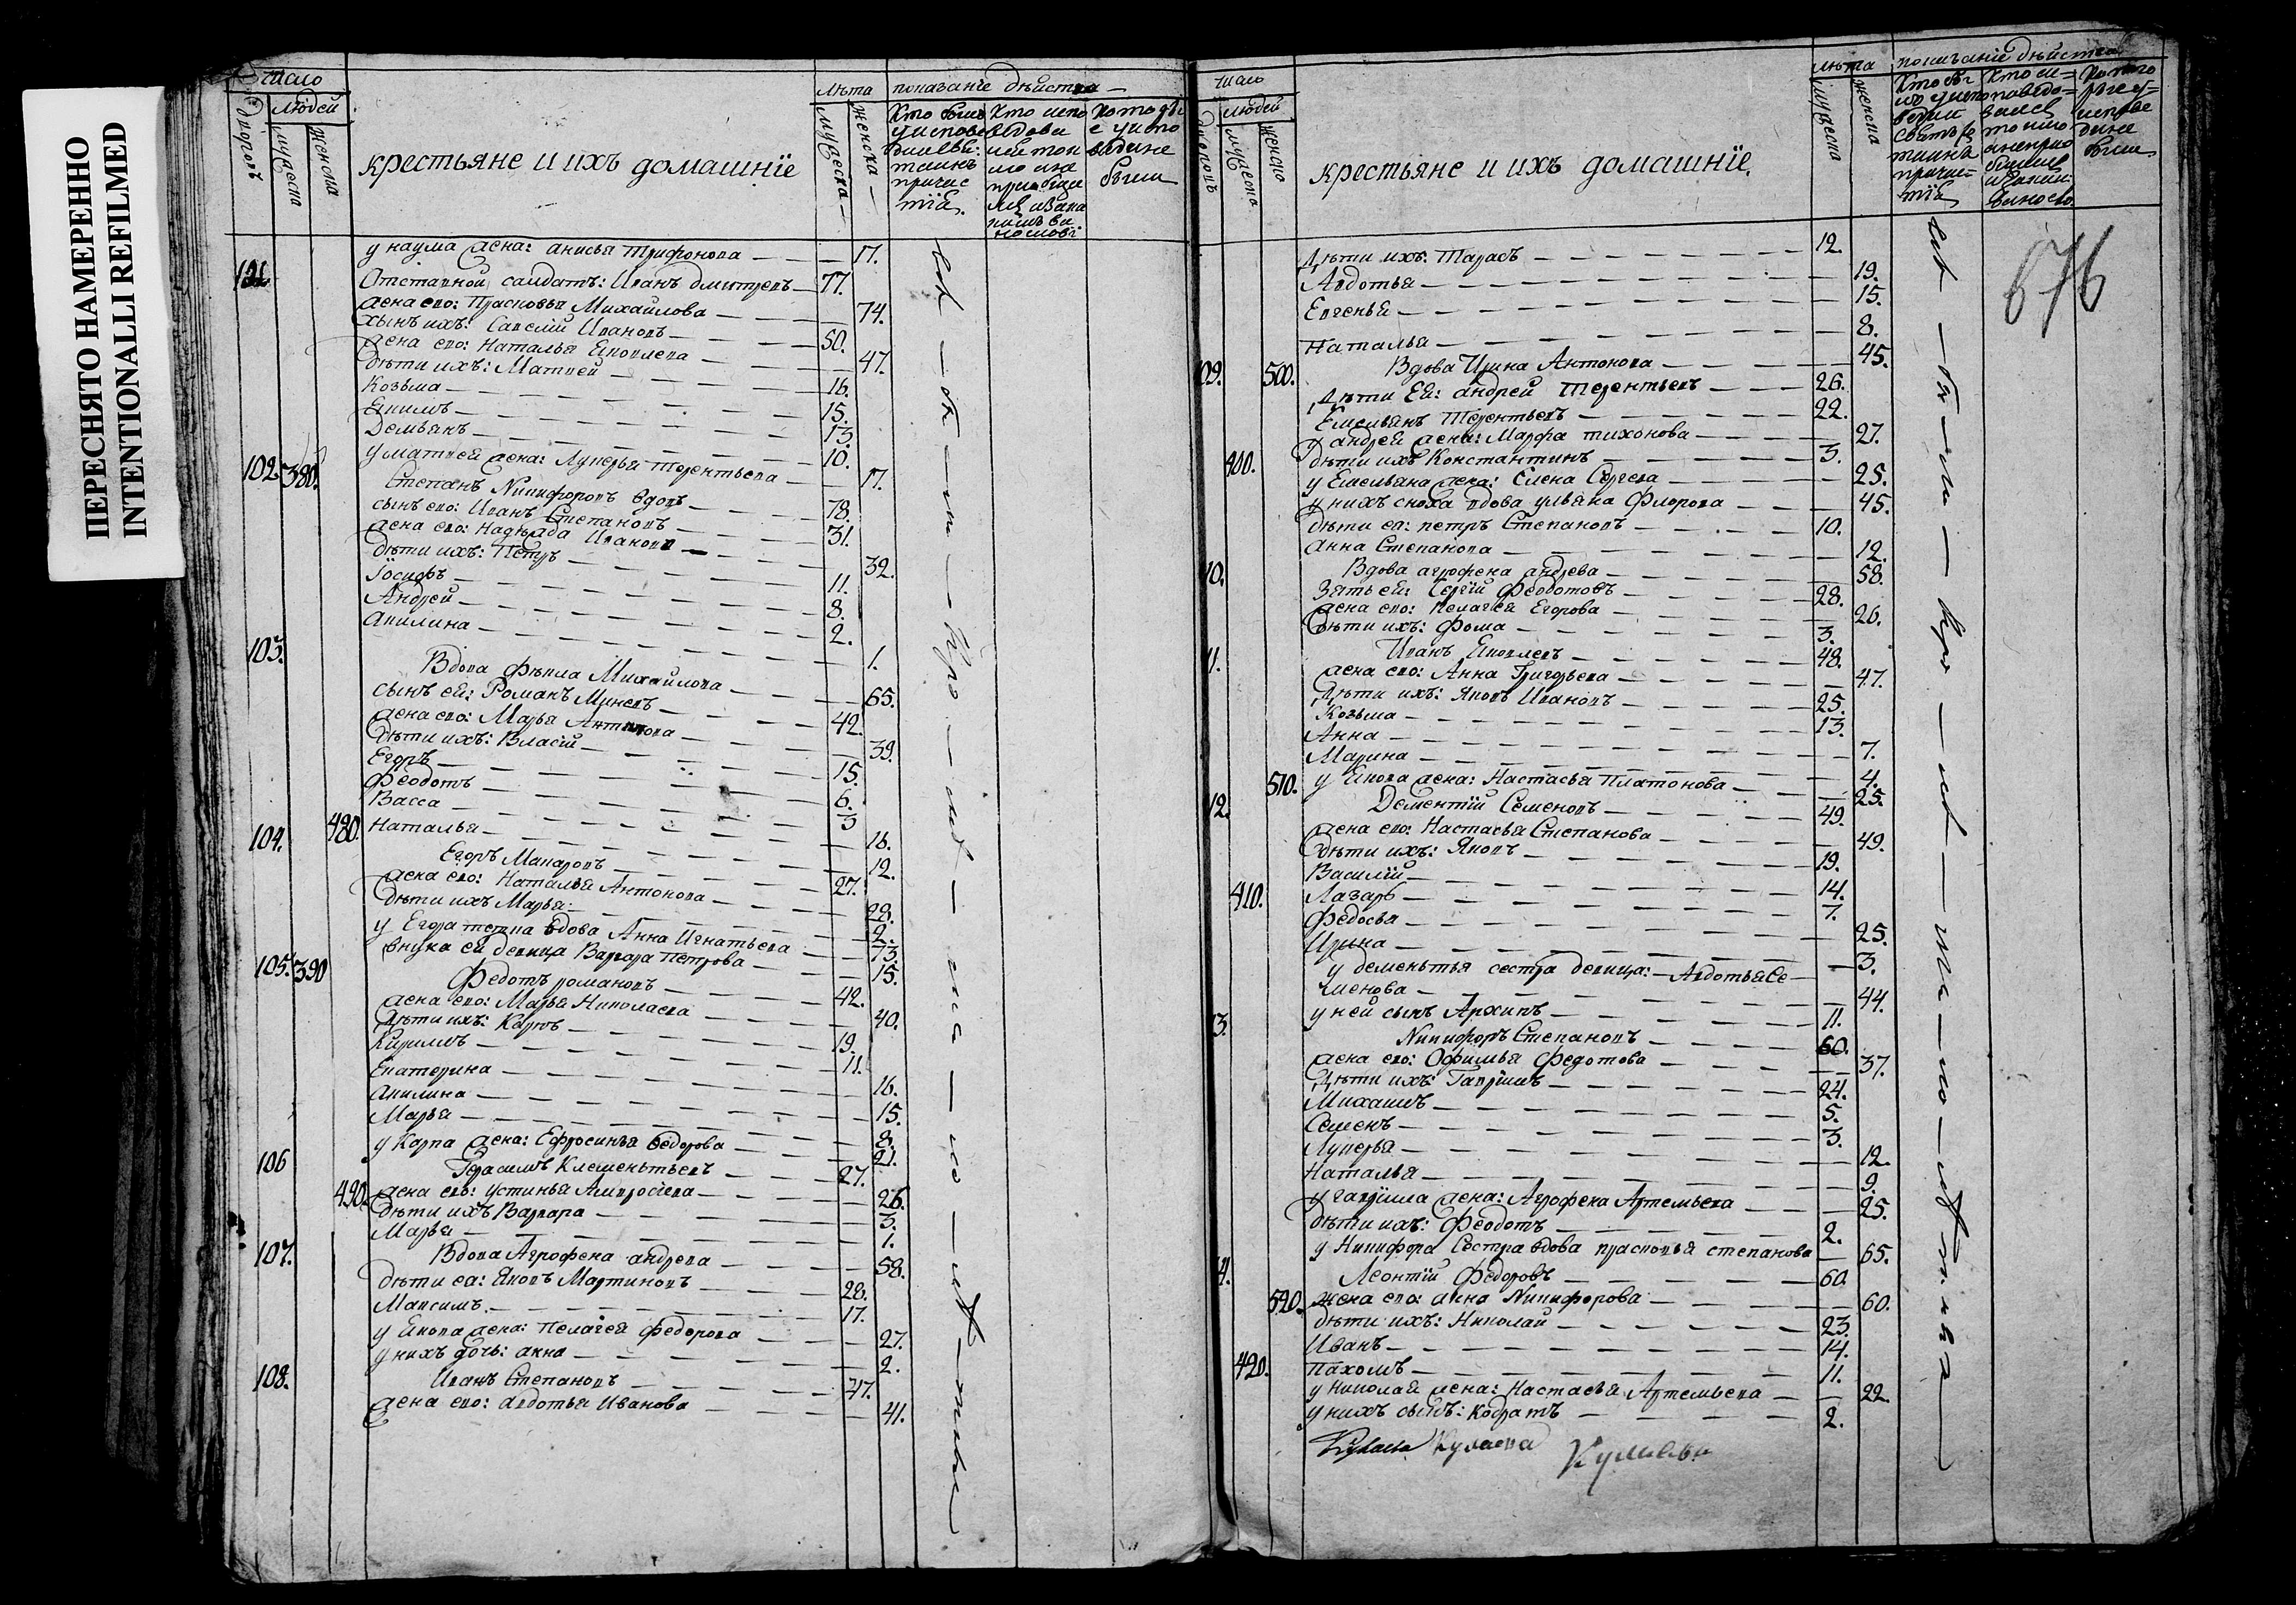 ПЕРЕСНЯТО НАМЕРЕННО
INTENTIONALLI REFILMED
число
людей
дворовъ
мужеска
женска
крестьяне и ихъ домашнїе
лѣта
мужеска
женска
показанїе дѣйства
у наума жена: анисья трифонова 17.
101. Отставной салдатъ: Иванъ дмитревъ 77.
жена ево: Прасковья Михайлова 74.
сынъ ихъ: Савелїй Ивановъ 50.
жена ево: Наталья Яковлева 47.
дѣти ихъ: Матвей 16.
Козьма 15.
Екимъ 13.
Демьянъ 10.
у матвея жена: Лукерья терентьева 17.
102. 380. Степанъ Никифоровъ вдовъ 78.
сынъ ево: Иванъ Степановъ 31.
жена ево: Надежда Иванова 32.
дѣти ихъ: Петръ 11.
Iосифъ 8.
Андрей 2.
Акилина 1.
103. Вдова Фѣкла Михайлова 65.
сынъ ей: Романъ Минеевъ 42.
жена ево: Марья Антипова 39.
дѣти ихъ: Власїй 15.
Егоръ 6.
Феодотъ 3
Васса 16.
480. Наталья 12.
104. Егоръ Макаровъ 27.
жена ево: Наталья Антонова 28.
дѣти ихъ Марья 2.
у Егора тетка вдова Анна Игнатьева 73.
внука ей девица Варвара петрова 15.
105. 390 Федотъ романовъ 42.
жена ево: Марья Николаева 40.
дѣти ихъ: Карпъ 19.
Кирилъ 11.
Екатерина 16.
Акилина 15.
Марья 8.
у Карпа жена: Ефросинья Федорова 21.
106 Герасимъ Клементьевъ 27.
490. жена ево: Устинья Амвросїева 26.
дѣти ихъ Варвара 3.
Марья 1.
107. Вдова Агрофена андрева 58.
дѣти еа: Яковъ Мартиновъ 28.
Максимъ 17.
у Якова жена: Пелагея федорова 27.
у нихъ дочь: анна 2.
108. Иванъ Степановъ 47.
жена ево: авдотья Иванова 41.
число
людей
дворовъ
мужеска
женско
крестьяне и ихъ домашнїе.
лѣта
мужеска
женска
показанїе дѣйства
676
дѣти ихъ: Тарасъ 12.
Авдотья 19.
Евгенья 15.
Наталья 8.
109. 500. Вдова Ирина Антонова 45.
дѣти Ей: андрей терентьевъ 26.
Емельянъ терентьевъ 22.
у андрея жена: Марфа тихонова 27.
400. дѣти ихъ Константинъ 3.
у Емельяна жена: Елена Сергева 25.
у нихъ сноха вдова ульяна Флорова 45.
дѣти еа: петръ Степановъ 10.
анна Степанова 12.
10. Вдова агрофена андрева 58.
Зять ей: Сергїй Феодотовъ 28.
жена ево: Пелагея Егорова 26.
дѣти ихъ: Фома 3.
11. Иванъ Яковлевъ 48.
жена ево: Анна Григорьева 47.
дѣти ихъ: Яковъ Ивановъ 25.
Козьма 13.
Анна 7.
Марина 4.
510. у Якова жена: Настасья Платонова 25.
12. Дементїй Семеновъ 49.
жена ево: Настасья Степанова 49.
дѣти ихъ: Яковъ 19.
Василїй 14.
410. Лазарь 7.
Федосья 25.
Ирина 3.
у деменьтья сестра девица: Авдотья Се
менова 44.
у ней сынъ Архипъ 11.
13. Никифоръ Степановъ 60.
жена ево: Офимья Федотова 37.
дѣти ихъ: Гаврїилъ 24.
Михаилъ 5.
Семенъ 3.
Лукерья 12.
Наталья 9.
у гаврїила жена: Агрофена Артемьева 25.
дѣти ихъ: Феодотъ 2.
у Никифора Сестра вдова прасковья степанова 65.
14. Леонтїй Федоровъ 60.
520. жена ево: анна Никифорова 60.
дѣти ихъ: Николай 23
Иванъ 14.
420. пахомъ 11.
у николая жена: Настасья Артемьева 22
у нихъ сынъ: Кодратъ 2.